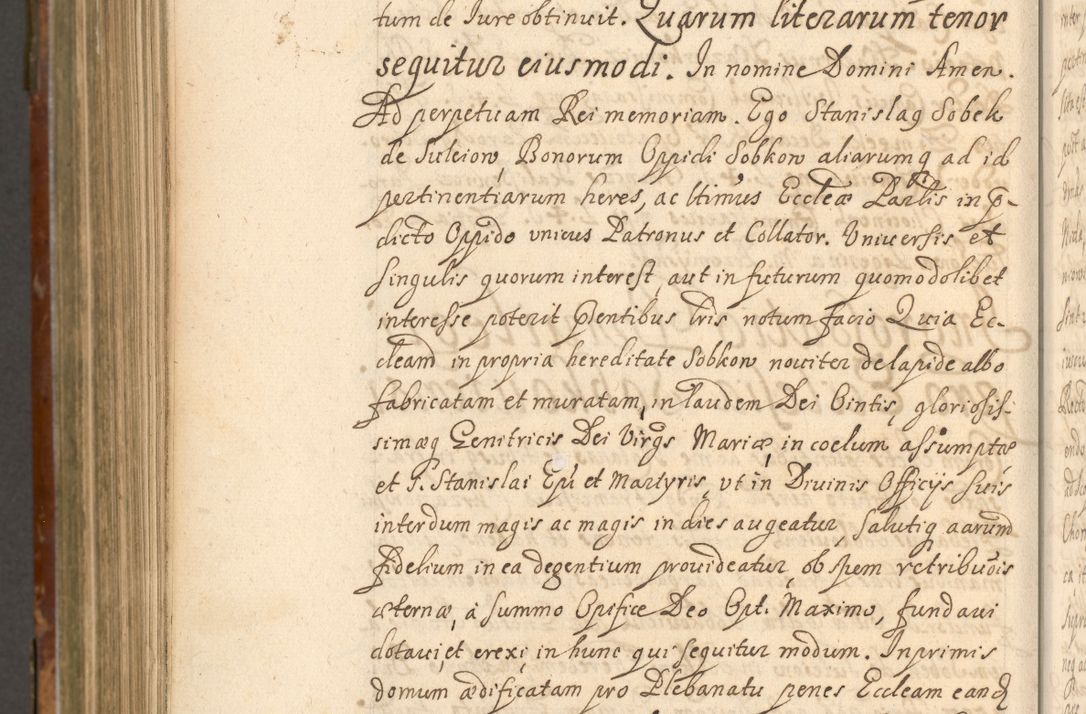 tum de Iure obtinuit. Quarum literarum tenor
sequitur eiusmodi. In nomine Domini Amen.
Ad perpetuam Rei memoriam. Ego Stanislaq Sobek
de Suleiow, Bonorum Oppidi Sobkow aliarumq ad id
pertinentiarum heres, ac ltimus Eccleæ Parlis in p-
dicto Oppido vnicus Patronus et Collator. Vniversis et
singulis quorum interest, aut in futurum quomodolibet
interesse poterit pntibus lris notum facio Quia Ec-
cleam in propria hereditate Sobkow noviter de lapide albo
fabricatam et muratam, in laudem Dei Ointis, gloriosis-
simæq Genitricis Dei Virgs Mariæ, in coelum assumptæ
et S. Stanislai Epi et Martyris, vt in Divinis Officijs suis
interdum magis ac magis in dies augeatur, salutiq aarum
fidelium in ea degentium provideatur, ob spem retribuois
æternæ, à summo Opifice Deo Opt. Maximo, fundavi
dotavi, et erexi, in hunc qui sequitur modum. Inprimis
domum ædificatam pro Plebanatu penes Eccleam eand